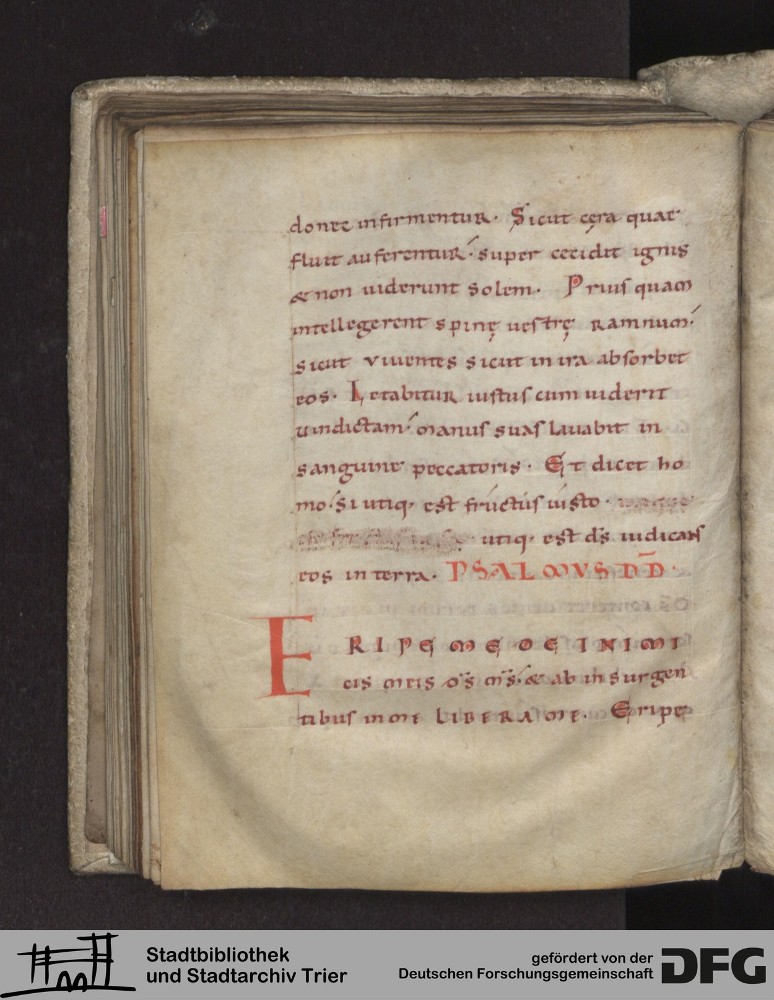 donec infirmentur. Sicut cęra quae
fluit auferentur. super cecidit ignis
& non uiderunt solem. Prius quam
intellegerent spinę uestrę ramnum.
sicut viventes sicut in ira absorbet
eos. Letabitur iustus cum uiderit
uindictam. manus suas lauabit in
sanguine peccatoris. Et dicet ho
mo. si utiq. est fructus iusto.
utiq. est d̄s iudicans
eos in terra. PSALMVS D̄D̄.
ERIPE ME DE INIMI
cis meis d̄s m̄s. & ab insurgen
tibus in me LIBERA ME. Eripe
Stadtbibliothek
und Stadtarchiv Trier
gefördert von der
Deutschen Forschungsgemeinschaft
DFG